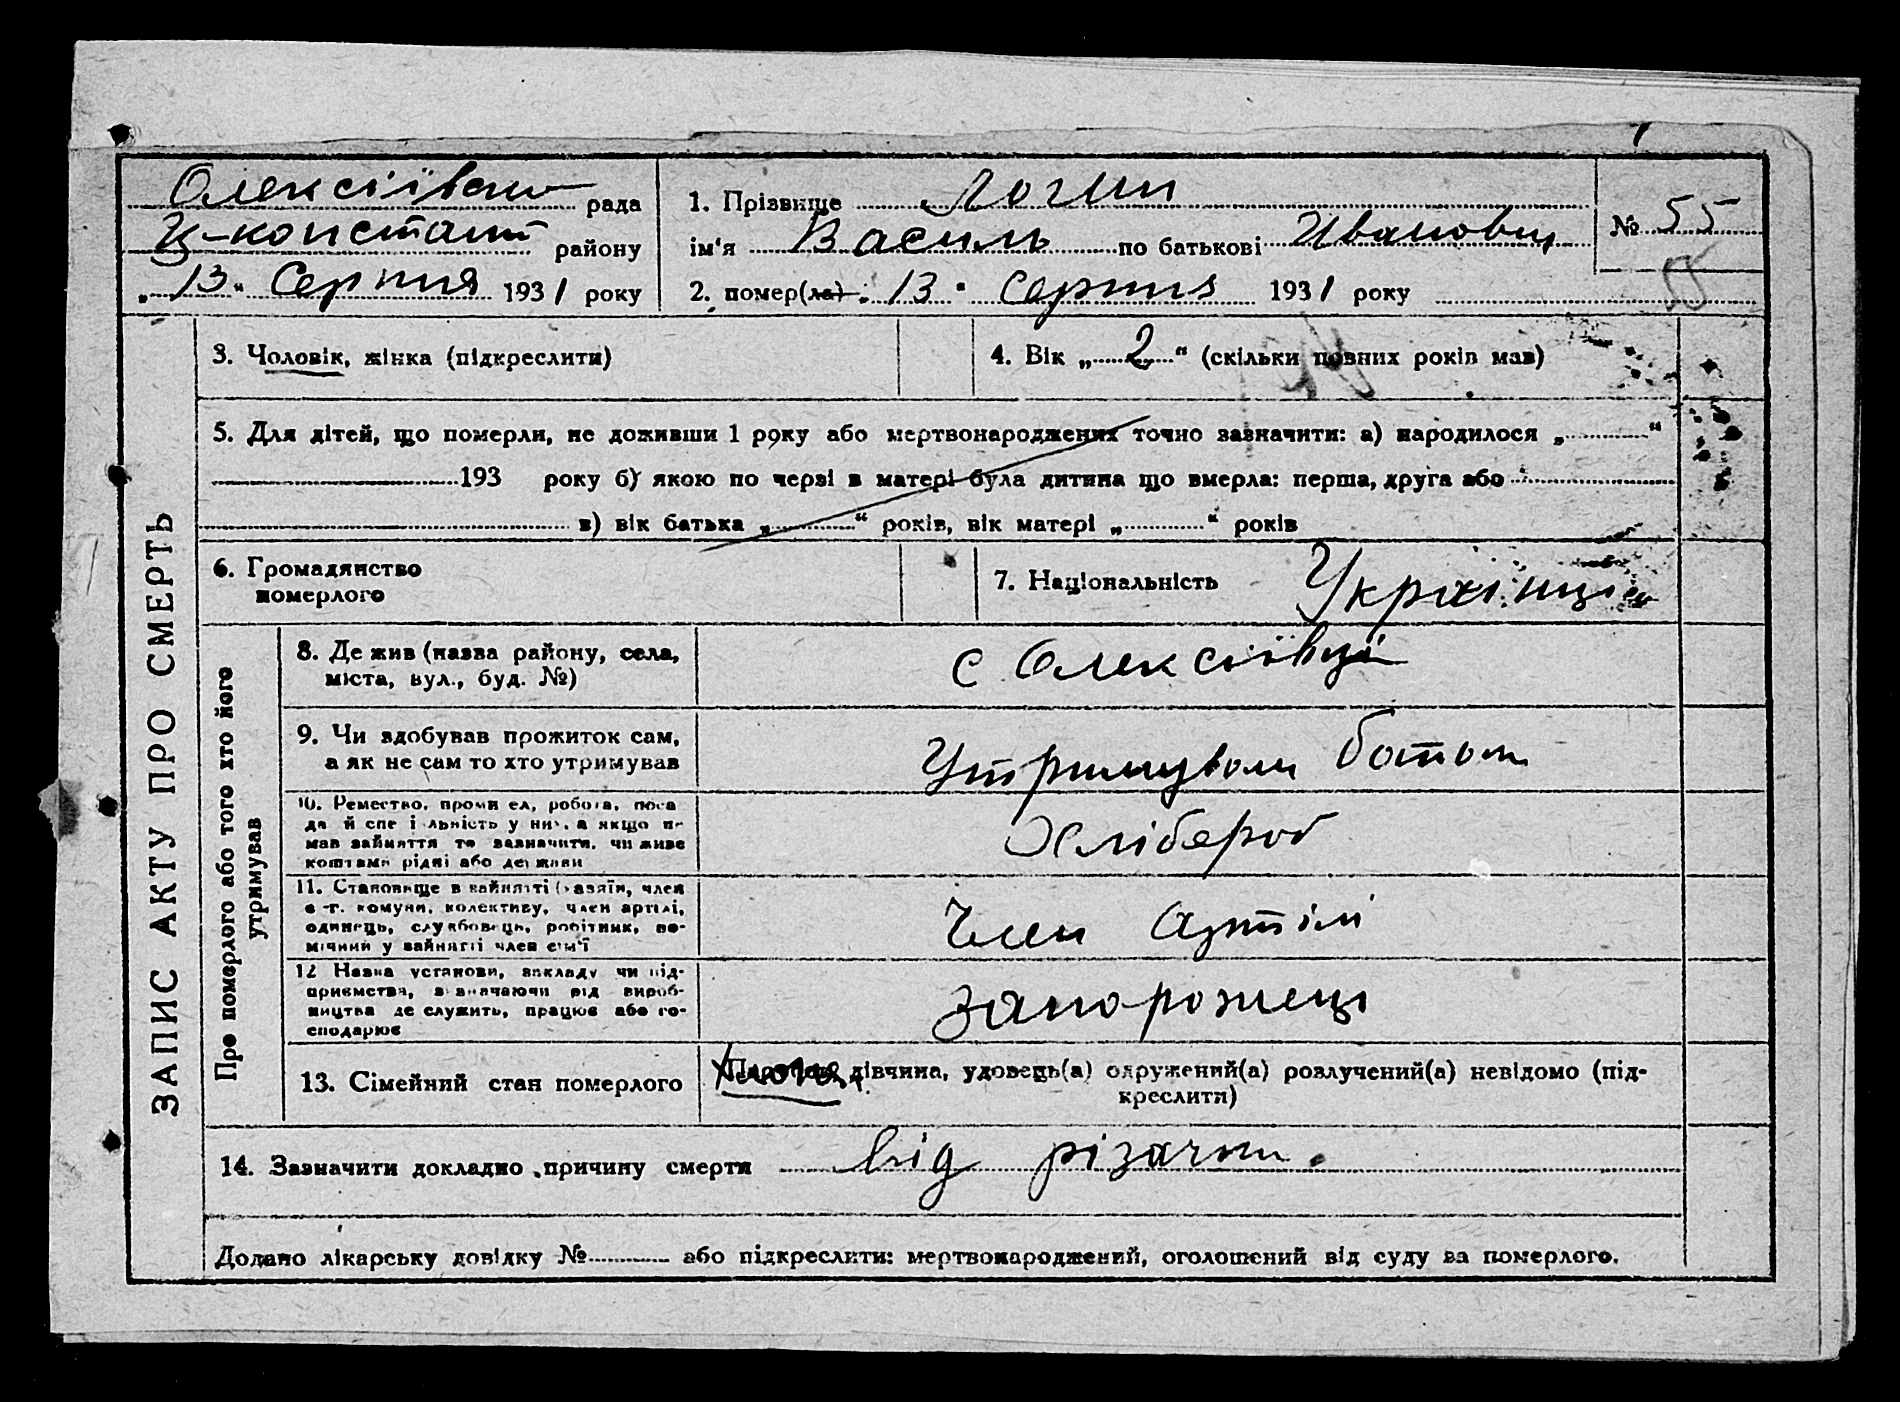 Олексіївськ рада
Ц-констант району
„13“ Серпня 1931 року
1. Прізвище Логин
ім'я Василь по батькові Иванович
2. помер(ла) 13 " Серпня 1931 року
№ 55
3. Чоловік, жінка (підкреслити)
4. Вік „2“ (скільки повних років мав)
5. Для дітей, що померли, не доживши 1 року або мертвонароджених точно зазначити: а) народилося „ “
193 року б) якою по черзі в матері була дитина що вмерла: перша, друга або
в) вік батька „ “ років, вік матері „ “ років
6. Громадянство
померлого
7. Національність Українці
ЗАПИС АКТУ ПРО СМЕРТЬ
Про померлого або того хто його
утримував
8. Де жив (назва району, села,
міста, вул., буд. №)
с Олексіївці
9. Чи здобував прожиток сам,
а як не сам то хто утримував
Утримували батьки
10. Ремество, промисел, робота, поса
да й спеціальність у них, а якщо не
мав зайняття то зазначити, чи живе
коштами рідні або держави
Хлібороб
11. Становище в зайнятті (хазяїн, член
с.-г. комуни, колективу, член артілі,
одинець, службовець, робітник, по-
мічний у зайнятті член сім'ї
Член Артілі
12 Назва установи, закладу чи під-
приємства, визначаючи рід вироб-
ництва де служить, працює або го-
сподарює
Запорожець
13. Сімейний стан померлого
дівчина, удовець(а) одружений(а) розлучений(а) невідомо (під-
креслити)
14. Зазначити докладно причину смерти від різачки.
Додано лікарську довідку № або підкреслити: мертвонароджений, оголошений від суду за померлого.